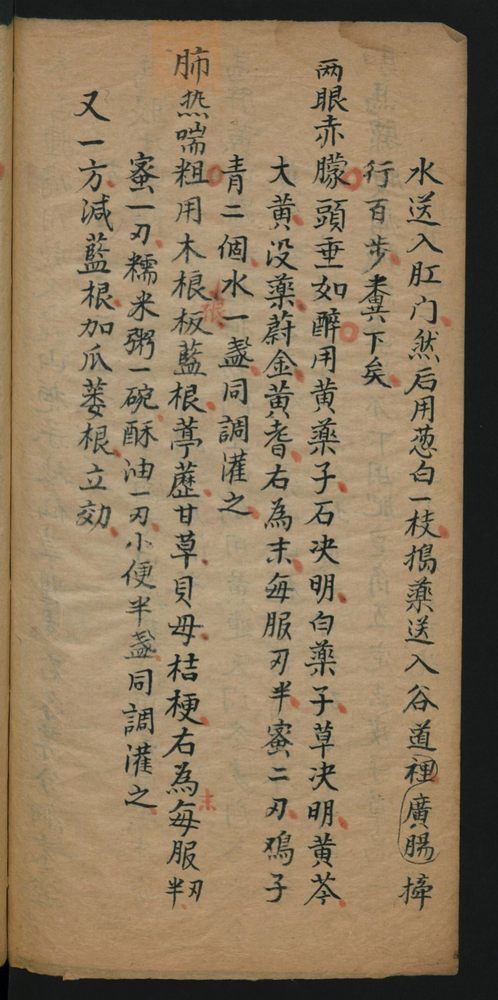 水送入肛门然后用葱白一枝搗藥送入谷道裡廣腸捧
行百步糞下矣
两眼赤朦頭垂如醉用黄藥子石决明白藥子草决明黄芩
大黄没藥蔚金黄耆右為末每服刃半蜜二刃鳮子
青二個水一盞同調灌之
肺热喘粗用木根板藍根葶藶甘草貝毋桔梗右為末每服刃半
蜜一刃糯米粥一碗酥油一刃小便半盞同調灌之
又一方減藍根加瓜蒌根立効